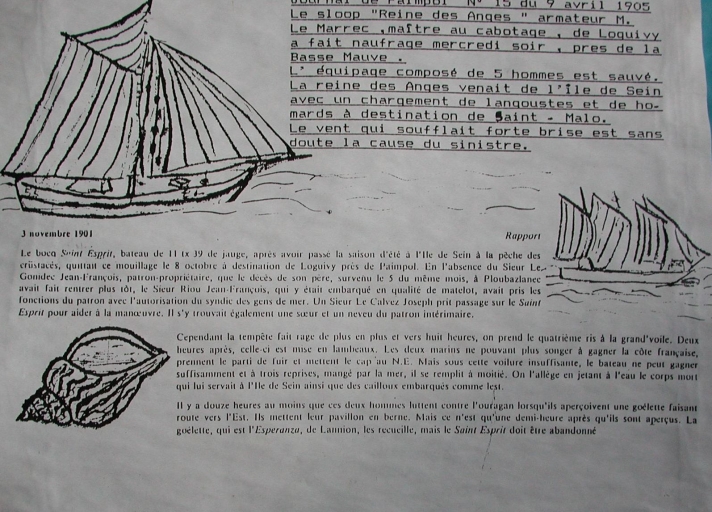 Journal de Paimpol N° 15 du 9 avril 1905
Le sloop "Reine des Anges " armateur M.
Le Marrec ,maître au cabotage , de Loguivy
a fait naufrage mercredi soir , pres de la
Basse Mauve .
L' équipage composé de 5 hommes est sauvé.
La reine des Anges venait de l'Ile de Sein
avec un chargement de langoustes et de ho-
mards à destination de Saint - Malo.
Le vent qui soufflait forte brise est sans
doute la cause du sinistre.
3 novembre 1901
Rapport
Le bocq Saint Esprit, bateau de 11 tx 39 de jauge, après avoir passé la saison d'été à l'Ile de Sein à la pêche des
crustacés, quittait ce mouillage le 8 octobre à destination de Loguivy près de Paimpol. En l'absence du Sieur Le
Gonidec Jean-François, patron-propriétaire, que le décès de son père, survenu le 5 du même mois, à Ploubazlanec
avait fait rentrer plus tôt, le Sieur Riou Jean-François, qui y était embarqué en qualité de matelot, avait pris les
fonctions du patron avec l'autorisation du syndic des gens de mer. Un Sieur Le Calvez Joseph prit passage sur le Saint
Esprit pour aider à la manœuvre. Il s'y trouvait également une sœur et un neveu du patron intérimaire.
Cependant la tempête fait rage de plus en plus et vers huit heures, on prend le quatrième ris à la grand'voile. Deux
heures après, celle-ci est mise en lambeaux. Les deux marins ne pouvant plus songer à gagner la côte française,
prennent le parti de fuir et mettent le cap au N.E. Mais sous cette voilure insuffisante, le bateau ne peut gagner
suffisamment et à trois reprises, mangé par la mer, il se remplit à moitié. On l'allège en jetant à l'eau le corps mort
qui lui servait à l'Ile de Sein ainsi que des cailloux embarqués comme lest.
Il y a douze heures au moins que ces deux hommes luttent contre l'ouragan lorsqu'ils aperçoivent une goélette faisant
route vers l'Est. Ils mettent leur pavillon en berne. Mais ce n'est qu'une demi-heure après qu'ils sont aperçus. La
goélette, qui est l'Esperanza, de Lannion, les recueille, mais le Saint Esprit doit être abandonné